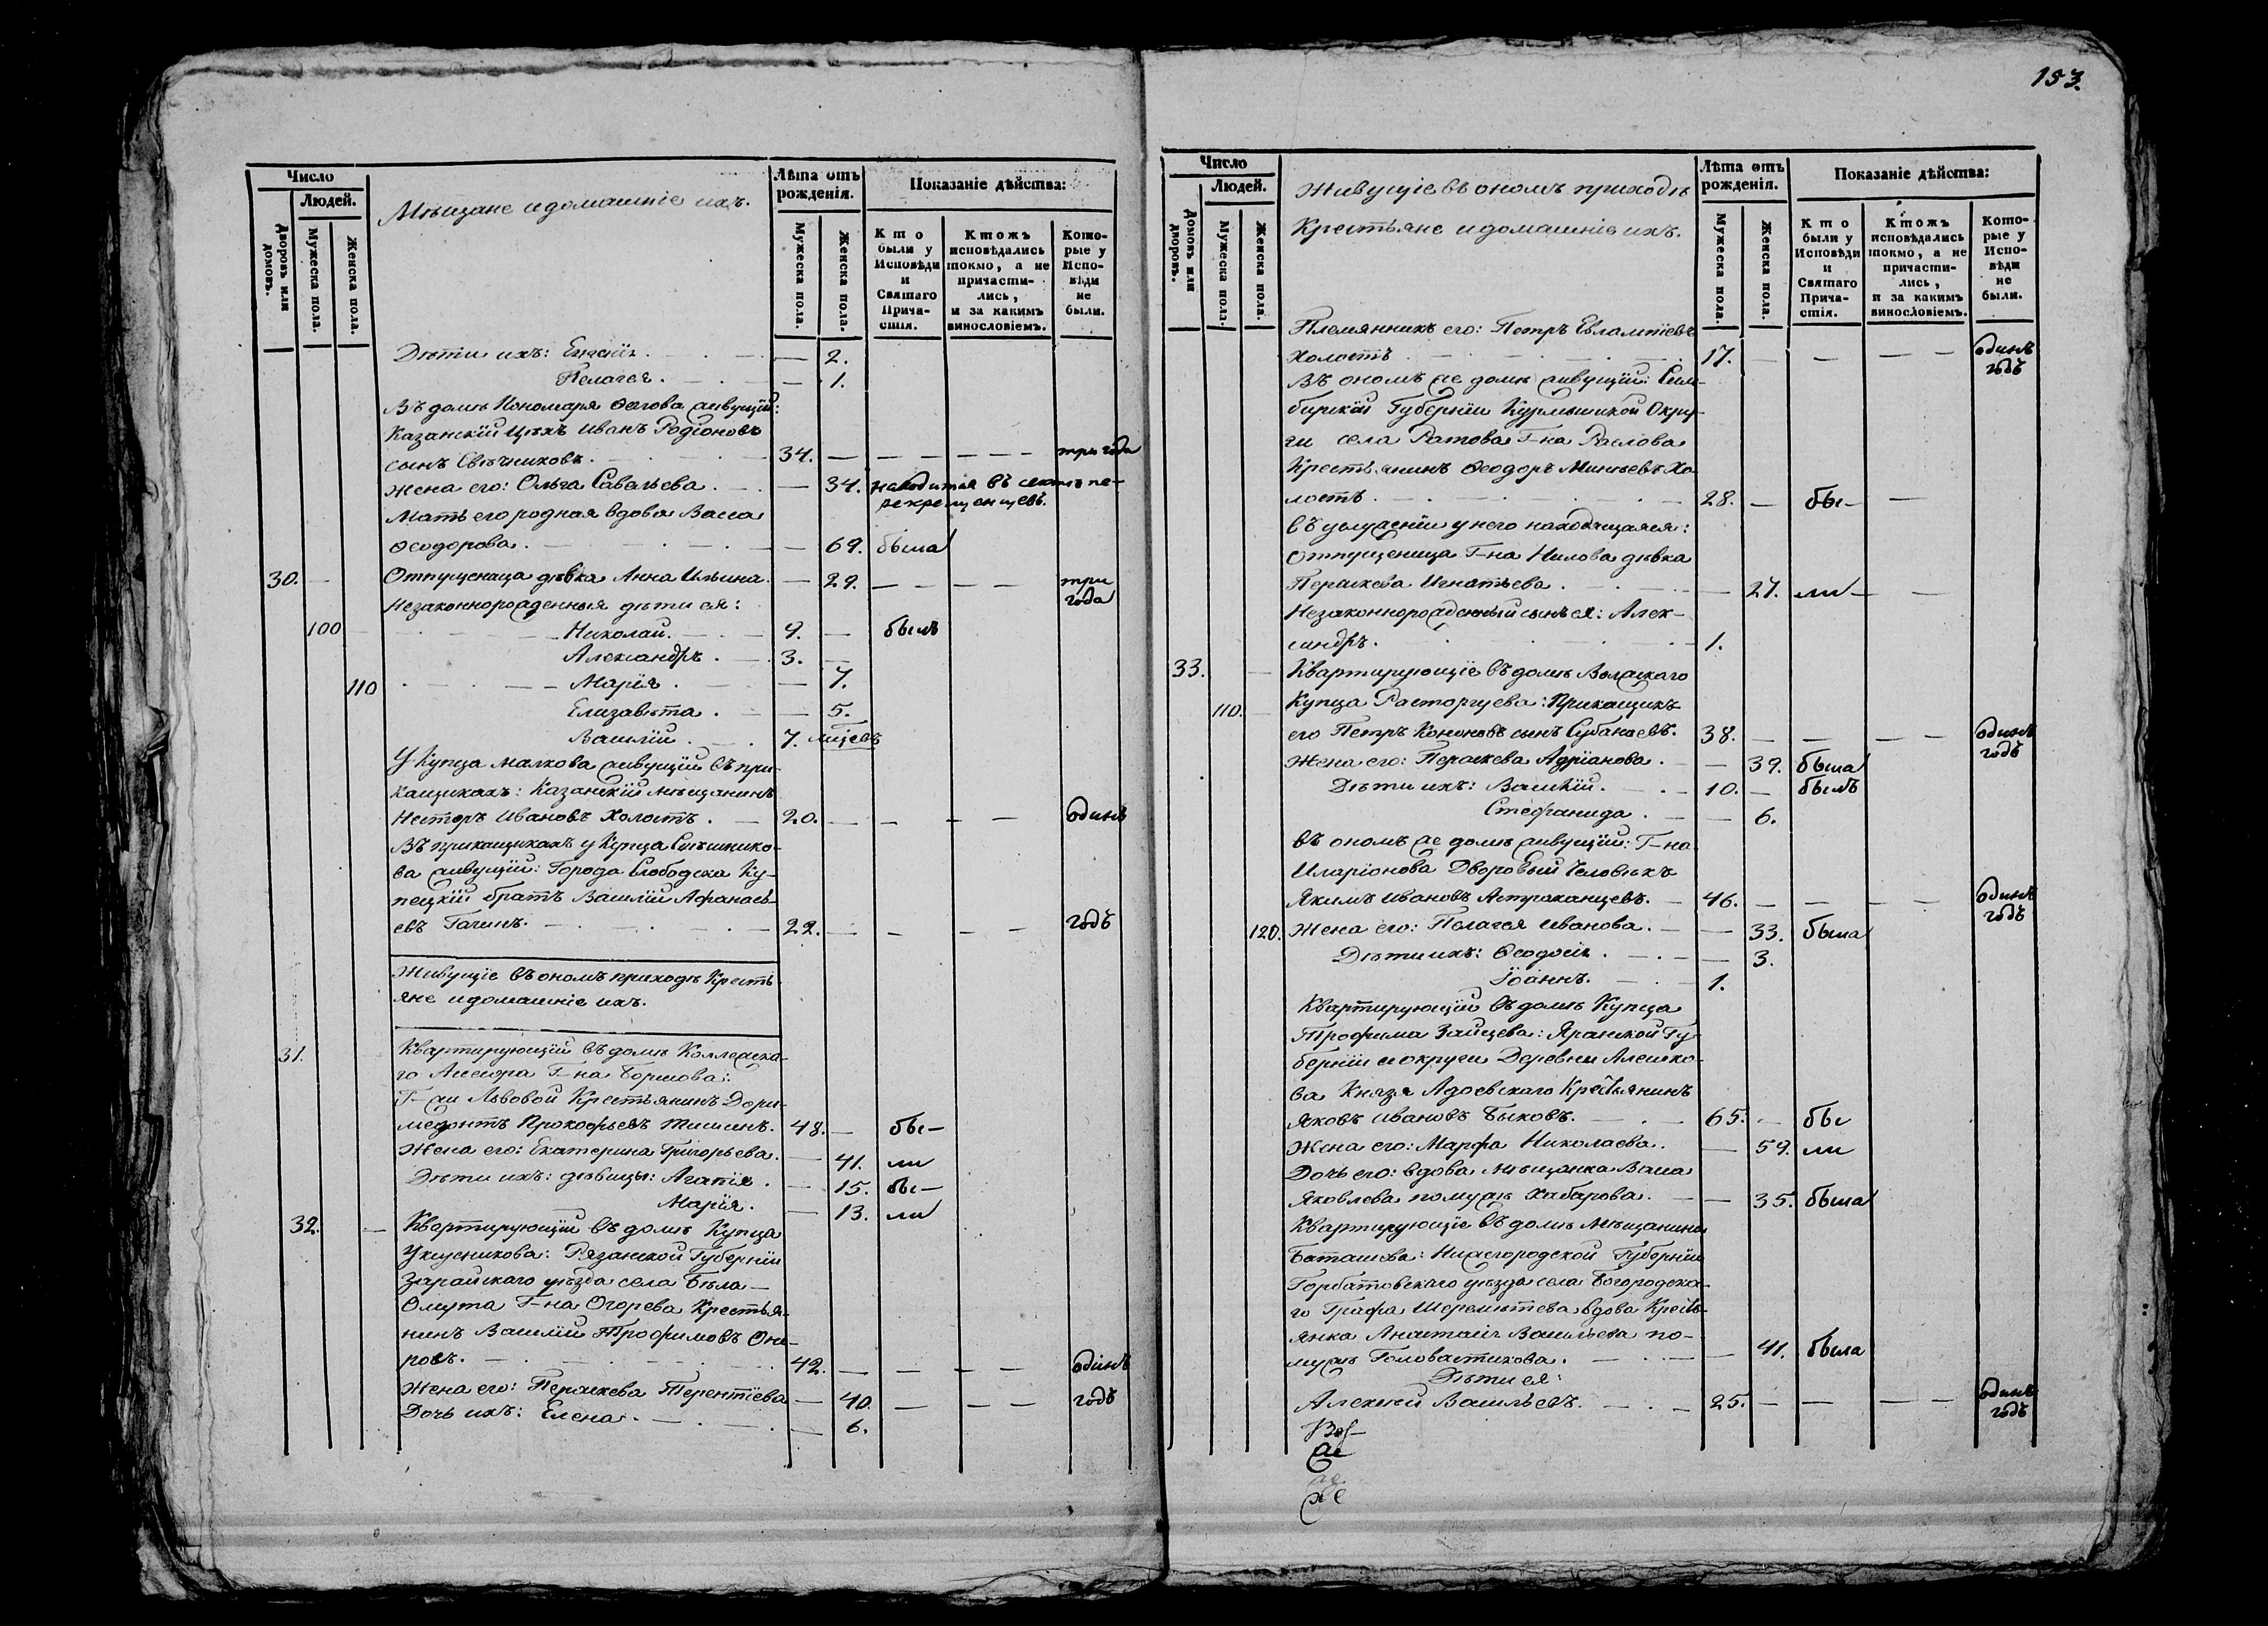 153.
Число
Людей.
Дворовъ или домовъ.
Мужеска пола.
Женска пола.
Мѣщане и домашніе ихъ.
Лѣта отъ рожденія.
Мужеска пола.
Женска пола.
Показаніе дѣйства:
Кто были у Исповѣди и Святаго Прича-стія.
Ктожъ исповѣдались токмо, а не причасти-лись, и за какимъ винословіемъ.
Кото-рые у Испо-вѣди не были.
Дѣти ихъ: — 2.
Пелагея. — 1.
Въ домѣ Пономаря живущій:
Казанскій Цѣхъ Иванъ Родіоновъ
сынъ Свѣчниковъ. 34. — — — — — три года
Жена его: Ольга Савельева. — 34. находится въ сектѣ пе-
рекрещенцевъ.
Мать его родная вдова Васса
Ѳеодорова. — 69. была
30. — Отпущеница дѣвка Анна Ильина. — 29. — — — — три года
Незаконнорожденныя дѣти ея:
100 — Николай. 9. — былъ
Александръ. 3. —
110 — Марія. — 7.
Елизавета. — 5.
Василій. 7. мѣсяцъ
У Купца Малкова живущій въ при-
кащикахъ: Казанскій мѣщанинъ
Несторъ Ивановъ Холостъ. 20. — — — — одинъ
Въ прикащикахъ у Купца
ва живущій: Города Слободска Ку-
пецкій братъ Василій Афанась-
евъ Гагинъ. 22. — — — годъ
Живущіе въ ономъ приходѣ Кресть-
яне и домашніе ихъ.
31. Квартирующій въ домѣ Коллежска-
го Асесора Г-на
Г-жи Львовой Крестьянинъ Дори-
медонтъ Прокофьевъ Тишинъ. 48. — бы-
Жена его: Екатерина Григорьева. — 41. ли
Дѣти ихъ: дѣвицы: Агапія. — 15. бы-
Марія. — 13. ли
32. — Квартирующій въ домѣ Купца
Уксусникова: Рязанской Губерніи
Зарайскаго уѣзда села Бѣла-
Омута Г-на Огорева Крестья-
нинъ Василій Трофимовъ
42. — — — — одинъ
Жена его: Параскева Терентіева — 40. — — — годъ
Дочь ихъ: Елена. — 6.
Число
Людей.
Домовъ или дворовъ.
Мужеска пола.
Женска пола.
Живущіе въ ономъ приходѣ
Крестьяне и домашніе ихъ.
Лѣта отъ рожденія.
Мужеска пола.
Женска пола.
Показаніе дѣйства:
Кто были у Исповѣди и Святаго Прича-стія.
Ктожъ исповѣдались токмо, а не причасти-лись, и за какимъ винословіемъ.
Кото-рые у Испо-вѣди не были.
Племянникъ его: Петръ Евлампіевъ
холостъ. 17. — — — — одинъ годъ
Въ ономъ же домѣ живущій: Сим-
бирской Губерніи Курмышской Окру-
ги села Ратова Г-на
Крестьянинъ Ѳеодоръ Минѣевъ Хо-
лостъ. 28. — бы- —
Въ услуженіи у него находящаяся:
Отпущеница Г-на Нилова дѣвка
Параскева Игнатьева. — 27. ли — —
Незаконнорожденный сынъ ея: Алек-
сандръ. 1.
33. — Квартирующіе въ домѣ Вольскаго
110. — Купца Расторгуева: Прикащикъ
его Петръ Кононовъ сынъ Субанаевъ. 38. — — — — одинъ годъ
Жена его: Параскева Адріанова. — 39. была
Дѣти ихъ: Василій. 10. — былъ
Стефанида. — 6.
Въ ономъ же домѣ живущій: Г-на
Иларіонова Дворовый Человѣкъ
Якимъ Ивановъ Астраханцевъ. 46. — — — — одинъ годъ
120. Жена его: Пелагея Иванова. — 33. была
Дѣти ихъ: Ѳеодосія. — 3.
Іоаннъ. 1.
Квартирующій въ домѣ Купца
Трофима Зайцева: Яранской Гу-
берніи и округи Деревни Алешко-
ва Князя Адоевскаго Крестьянинъ
Яковъ Ивановъ Быковъ. 65. — бы
Жена его: Марфа Николаева. — 59. ли
Дочь его: вдова мѣщанка Васса
Яковлева по мужѣ Хабарова. — 35. была
Квартирующіе въ домѣ мѣщанина
Баташева: Нижегородской Губерніи
Горбатовскаго уѣзда села Богородска-
го Графа Шереметева вдова Кресть-
янка Анастасія Васильева по-
мужѣ Головастикова. — 41. была
Дѣти ея:
Алексѣй Васильевъ. 25. — — — — одинъ годъ